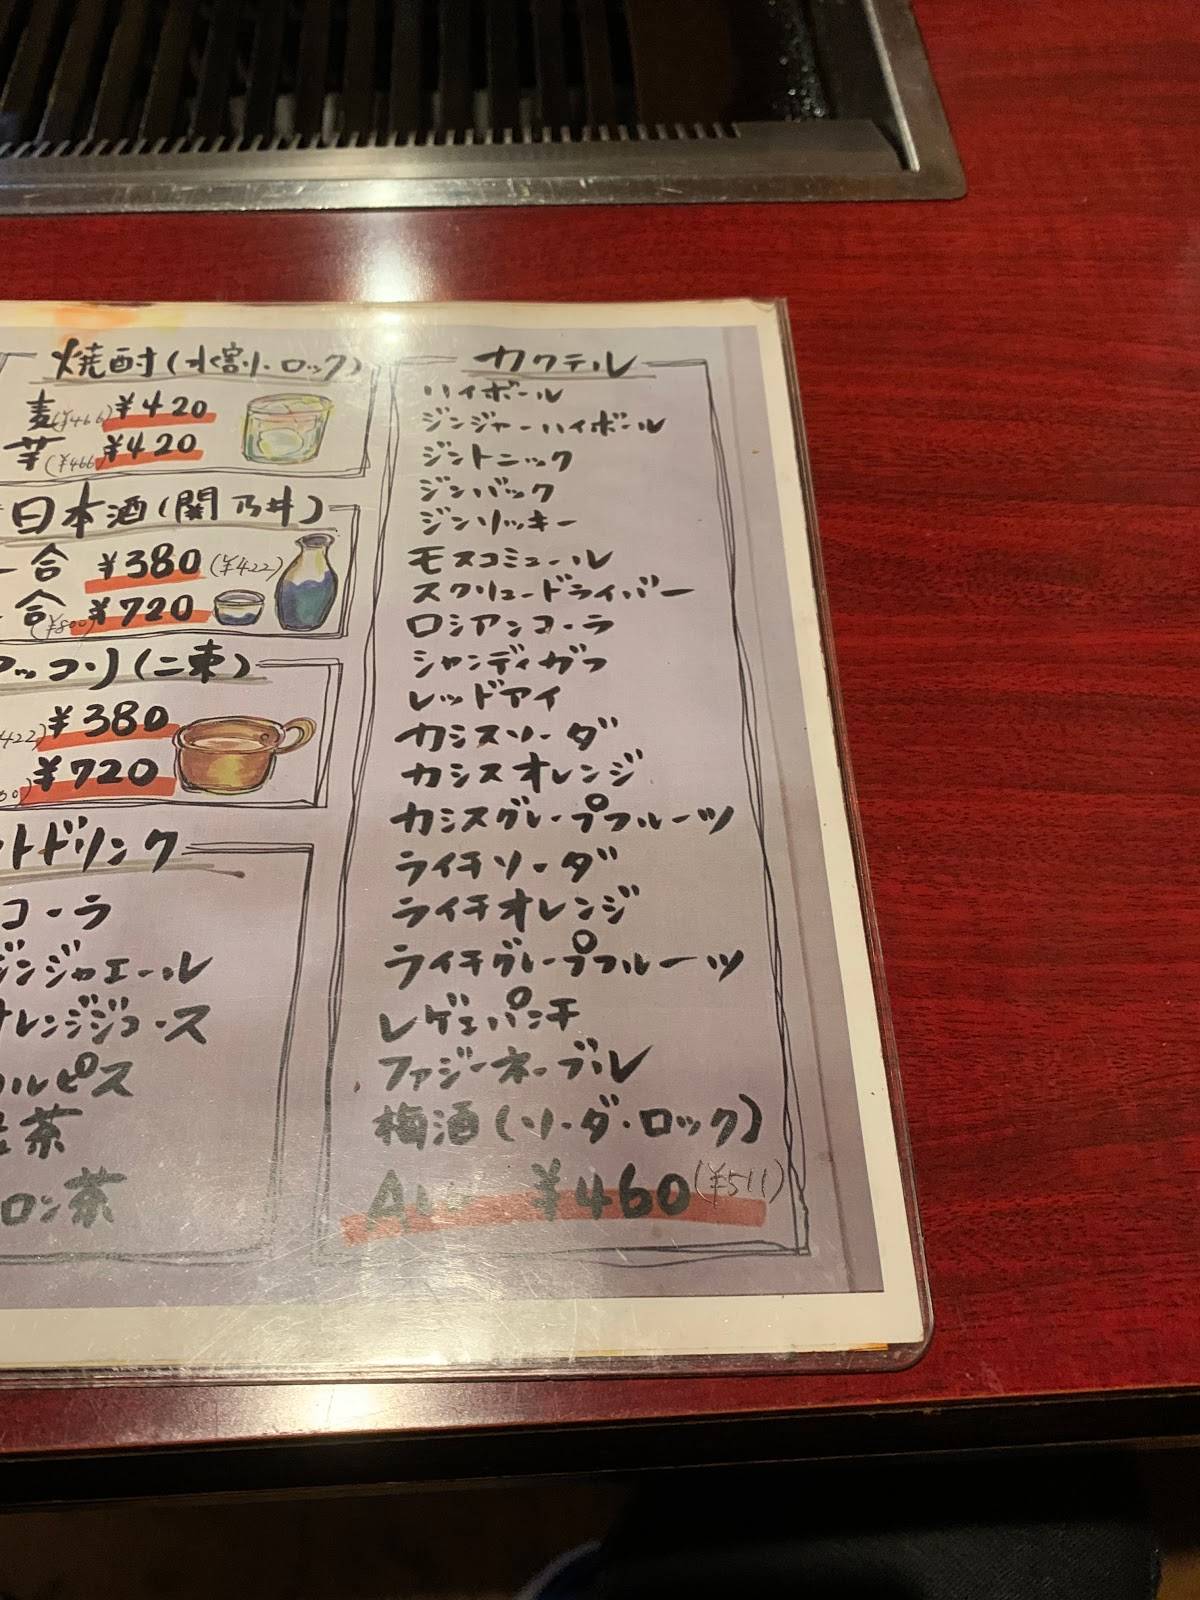 焼酎(水割・ロック)
麦(¥466)¥420
芋(¥466)¥420
日本酒(関乃井)
一合 ¥380(¥422)
合(¥800)¥720
ッコリ(二東)
422)¥380
¥720
ドリンク
コーラ
ジンジャエール
オレンジジュース
ルピス
茶
ロン茶
カクテル
ハイボール
ジンジャーハイボール
ジントニック
ジンバック
ジンリッキー
モスコミュール
スクリュードライバー
ロシアンコーラ
シャンディガフ
レッドアイ
カシスソーダ
カシスオレンジ
カシスグレープフルーツ
ライチソーダ
ライチオレンジ
ライチグレープフルーツ
レゲェパンチ
ファジーネーブル
梅酒(ソーダ・ロック)
All ¥460(¥511)